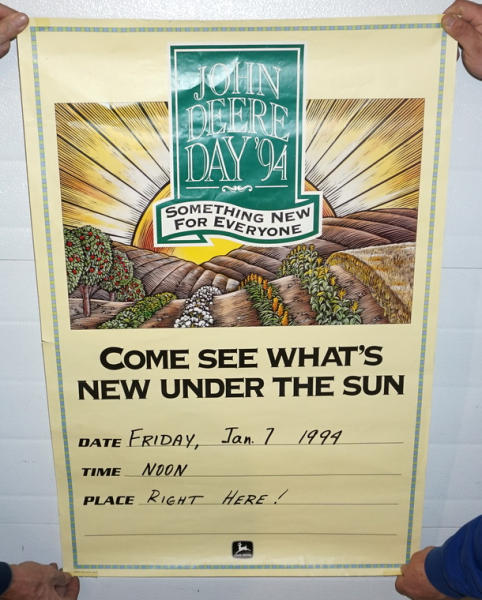 JOHN
DEERE
DAY '94
SOMETHING NEW
FOR EVERYONE
COME SEE WHAT'S
NEW UNDER THE SUN
DATE FRIDAY, Jan. 7 1994
TIME NOON
PLACE RIGHT HERE!